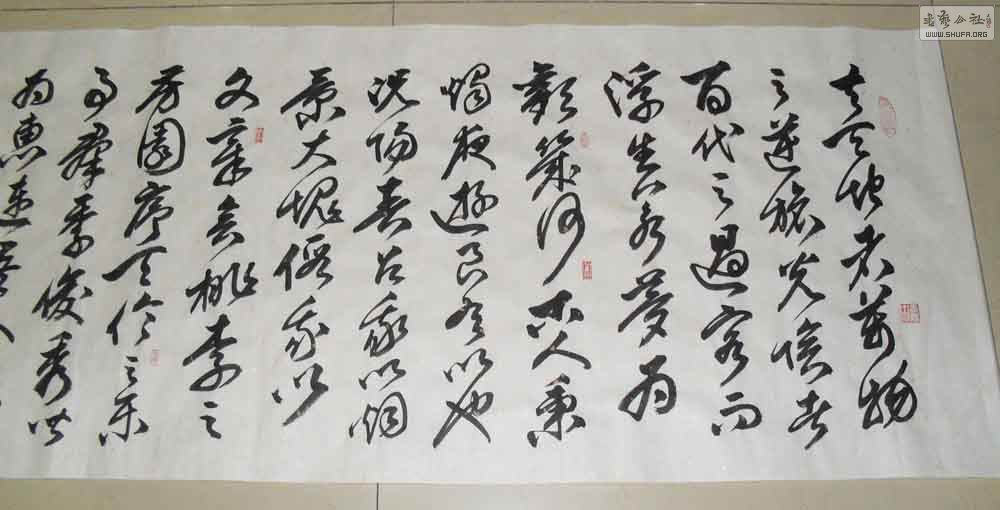 书艺公社
WWW.SHUFA.ORG
夫天地者萬物
之逆旅光陰者
百代之過客而
浮生若夢為
歡幾何古人秉
燭夜遊良有以也
況陽春召我以烟
景大塊假我以
文章會桃李之
芳園序天倫之樂
事群季俊秀皆
為惠連吾人